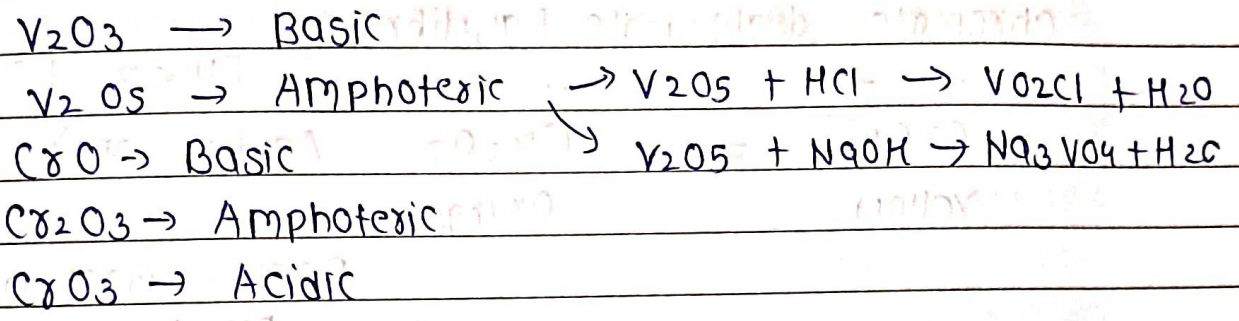 V2O3 → Basic
V2O5 → Amphoteric → V2O5 + HCl → VO2Cl + H2O
CrO → Basic ↘ V2O5 + NaOH → Na3VO4 + H2O
Cr2O3 → Amphoteric
CrO3 → Acidic